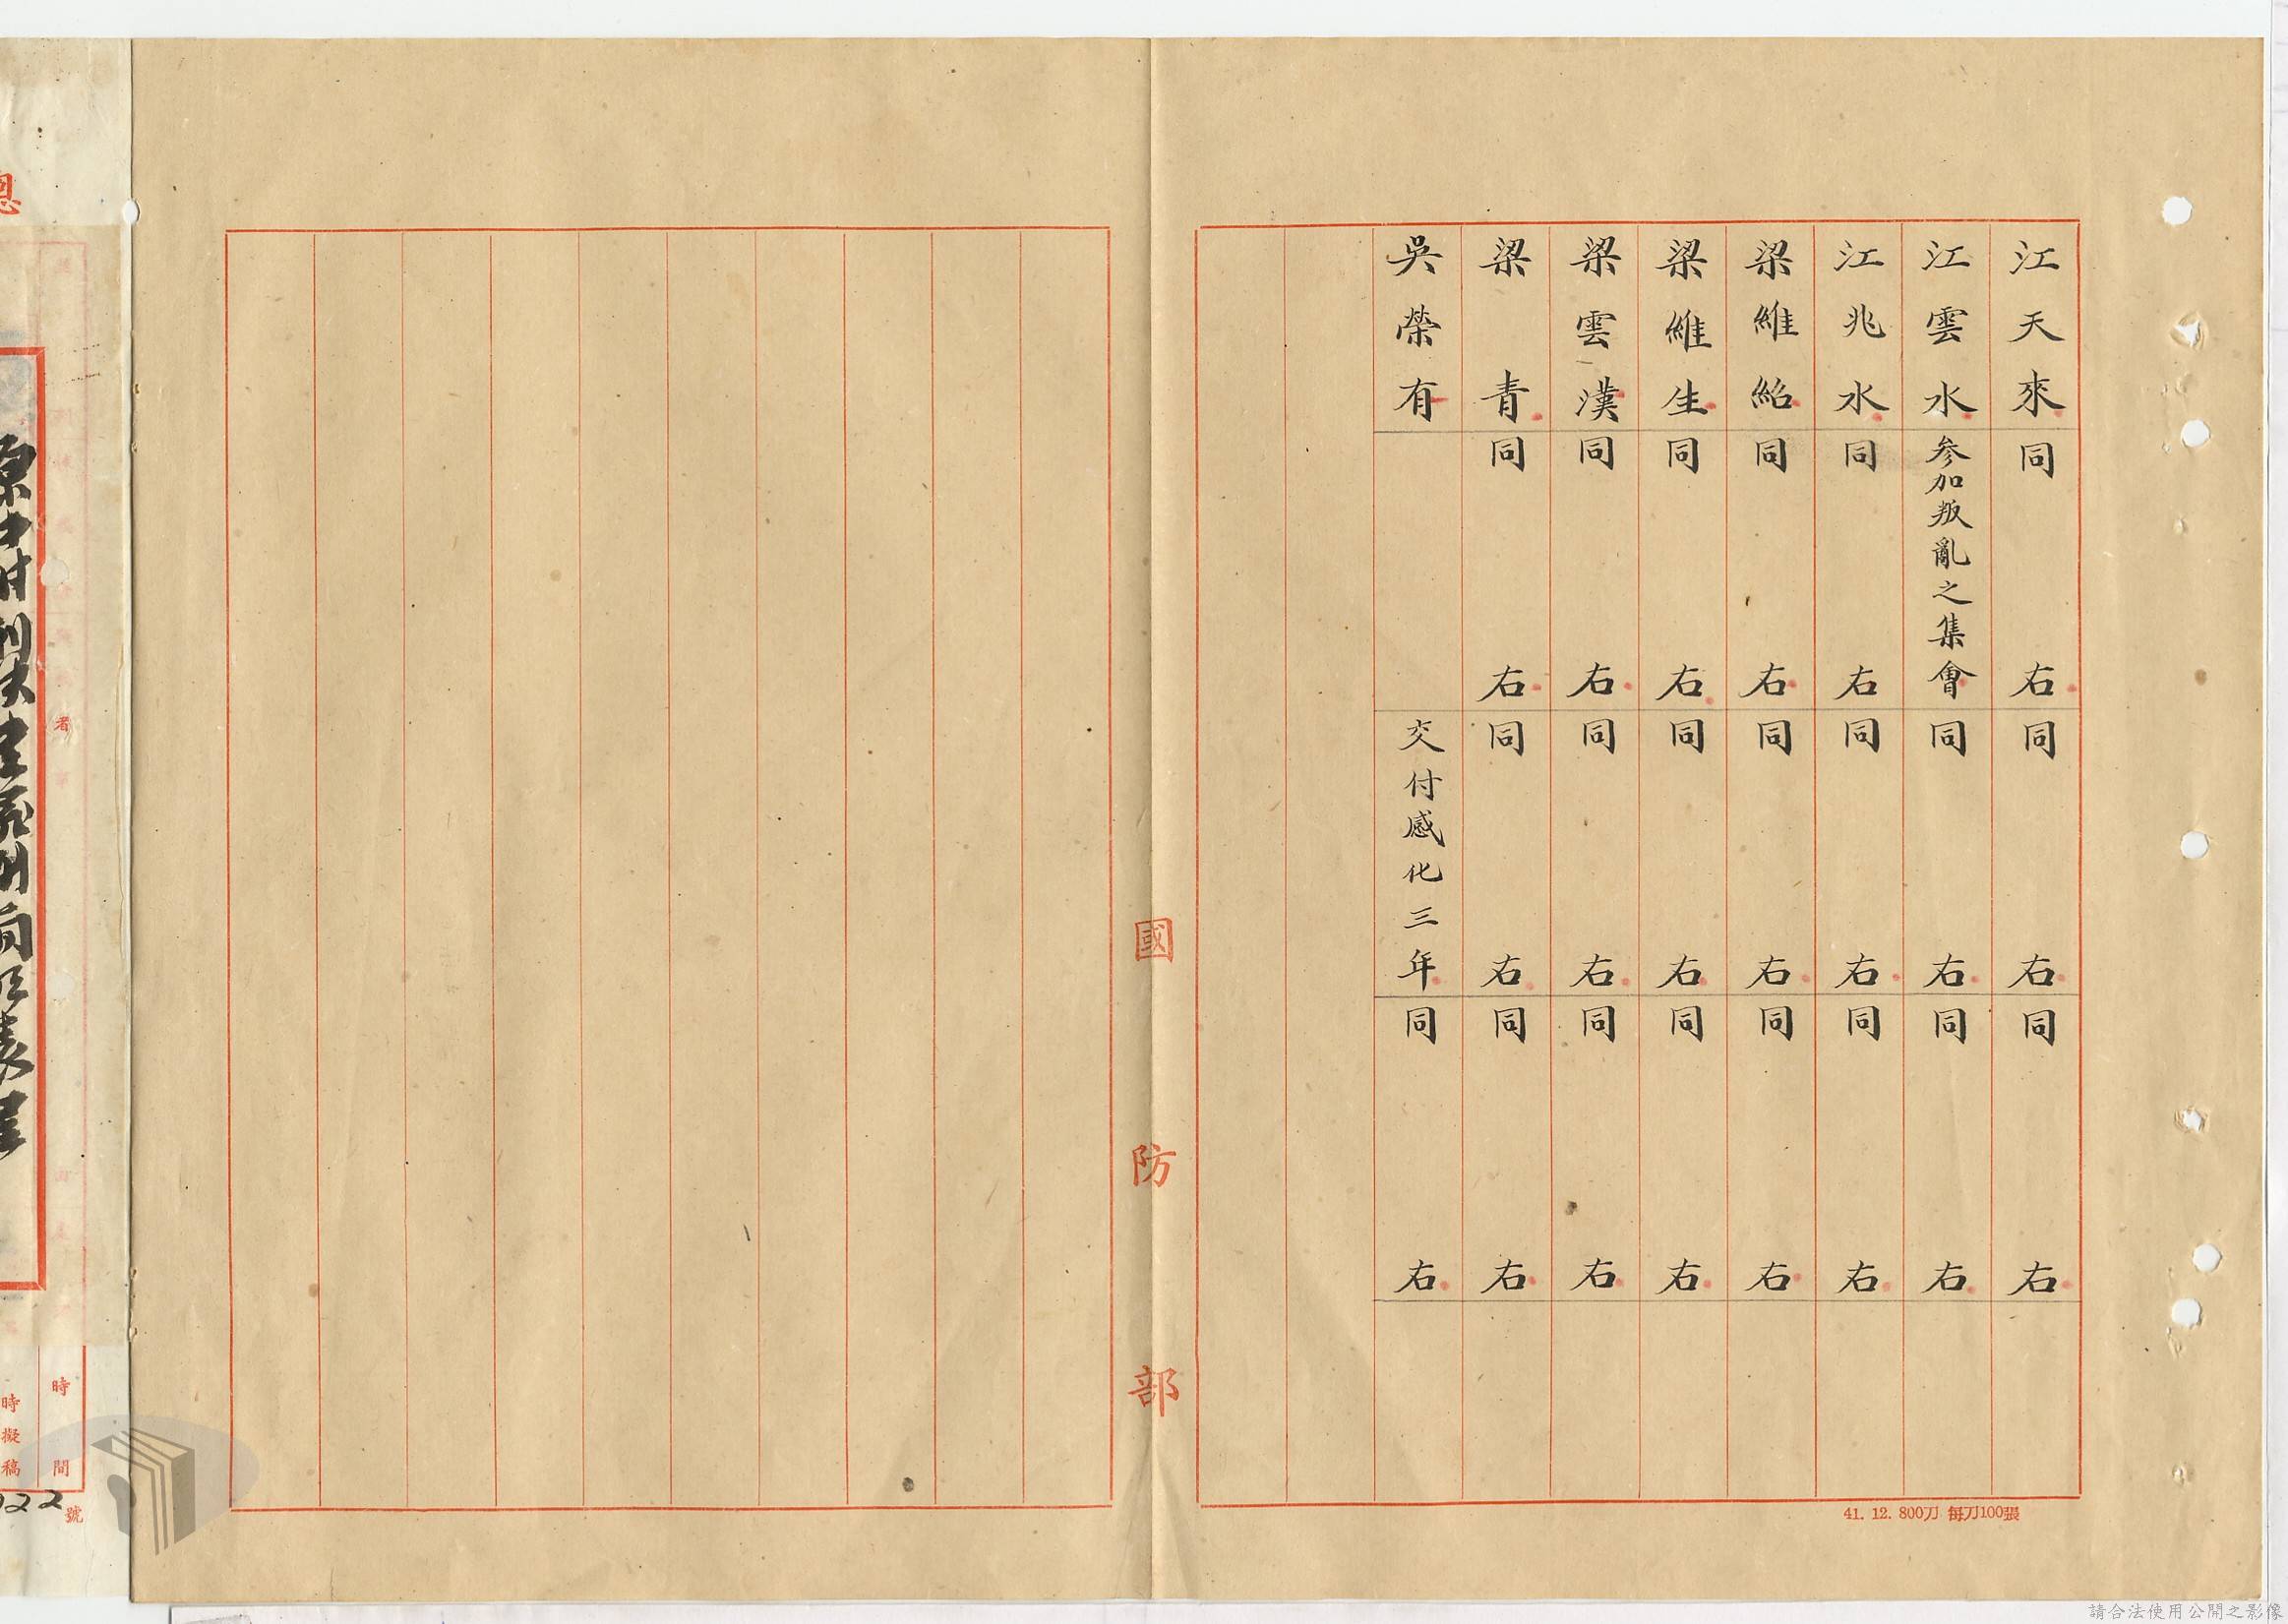 江天來 同右 同右 同右
江雲水 參加叛亂之集會 同右 同右
江兆水 同右 同右 同右
梁維紹 同右 同右 同右
梁維生 同右 同右 同右
梁雲漢 同右 同右 同右
梁青 同右 同右 同右
吳榮有 交付感化三年 同右
41. 12. 800刀 每刀100張
國防部
者
時間
號
時擬稿
22
請合法使用公開之影像